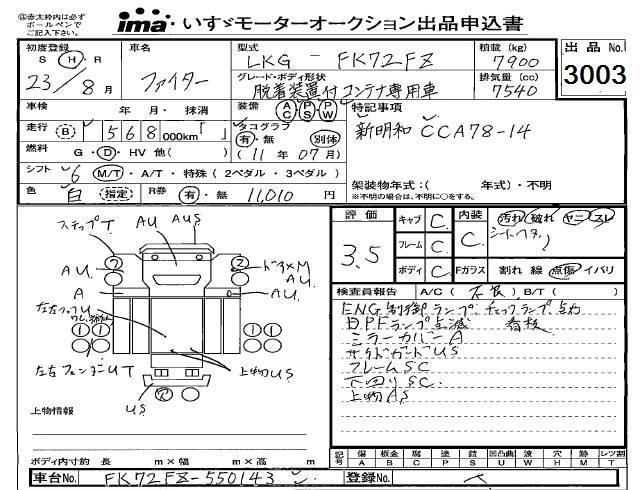 ◎赤太枠内は必ずボールペンでご記入下さい。
ima いすゞモーターオークション出品申込書
初度登録 S H R 23/8月
車名 ファイター
型式 LKG - FK72FZ
積載 (kg) 7900
出品No. 3003
グレード・ボディ形状 脱着装置付コンテナ専用車
排気量 (cc) 7540
車検 年 月・抹消
装備 AC PS PW
特記事項
走行 (B) 568000km「 」
タコグラフ 有・無 別体 (11年07月)
新明和 CCA78-14
燃料 G・D・HV 他( )
シフト 6 M/T・A/T・特殊(2ペダル・3ペダル)
色 白 指定 R券 有・無 11,010円
架装物年式:( 年式)・不明
※不明の場合は、不明に○をする。
評価 3.5
キャブ C
フレーム C
ボディ C
内装 C
汚れ 破れ ヤニ スレ
シートヘタリ
Fガラス 割れ 線 点傷 イバリ
検査員報告 A/C(不良)B/T( )
ENG制御ランプ チェックランプ点灯
DPFランプ点滅 看板
ミラーカバーA
サイドガードUS
フレームSC
下回りSC
上物AS
ステップT
AU
AUS
AU
ドアXM
AU
A
AU
左右フェンダーUT
上物US
US
上物情報
ボディ内寸約 長 m×幅 m×高 m
記号 傷A 板金B 腐C 塗P 錆S 凹凸曲U 波W 穴H 跡M レツ割T
車台No. FK72FZ-550143
登録No.